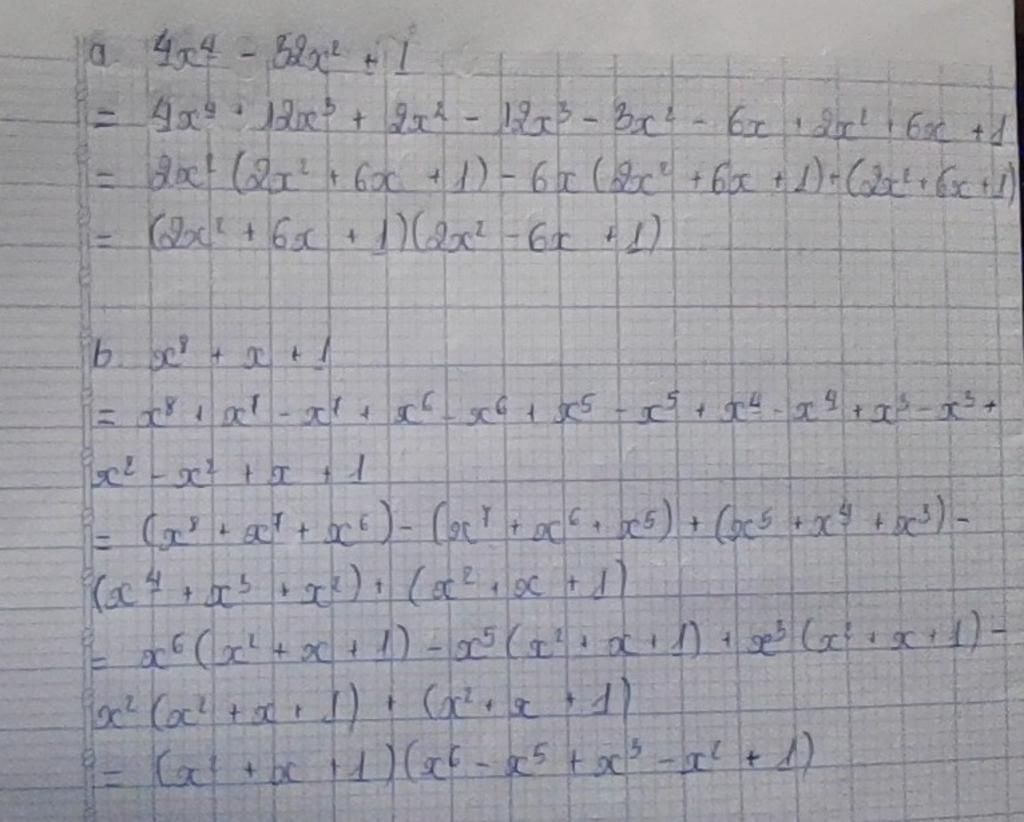 a. 4x⁴ - 32x² + 1
= 4x⁴ + 12x³ + 2x² - 12x³ - 3x² - 6x + 2x² + 6x + 1
= 2x² (2x² + 6x + 1) - 6x (2x² + 6x + 1) + (2x² + 6x + 1)
= (2x² + 6x + 1)(2x² - 6x + 1)
b. x⁸ + x + 1
= x⁸ + x⁷ - x⁷ + x⁶ - x⁶ + x⁵ - x⁵ + x⁴ - x⁴ + x³ - x³ +
x² - x² + x + 1
= (x⁸ + x⁷ + x⁶) - (x⁷ + x⁶ + x⁵) + (x⁵ + x⁴ + x³) -
(x⁴ + x³ + x²) + (x² + x + 1)
= x⁶ (x² + x + 1) - x⁵ (x² + x + 1) + x³ (x² + x + 1) -
x² (x² + x + 1) + (x² + x + 1)
= (x² + x + 1)(x⁶ - x⁵ + x³ - x² + 1)